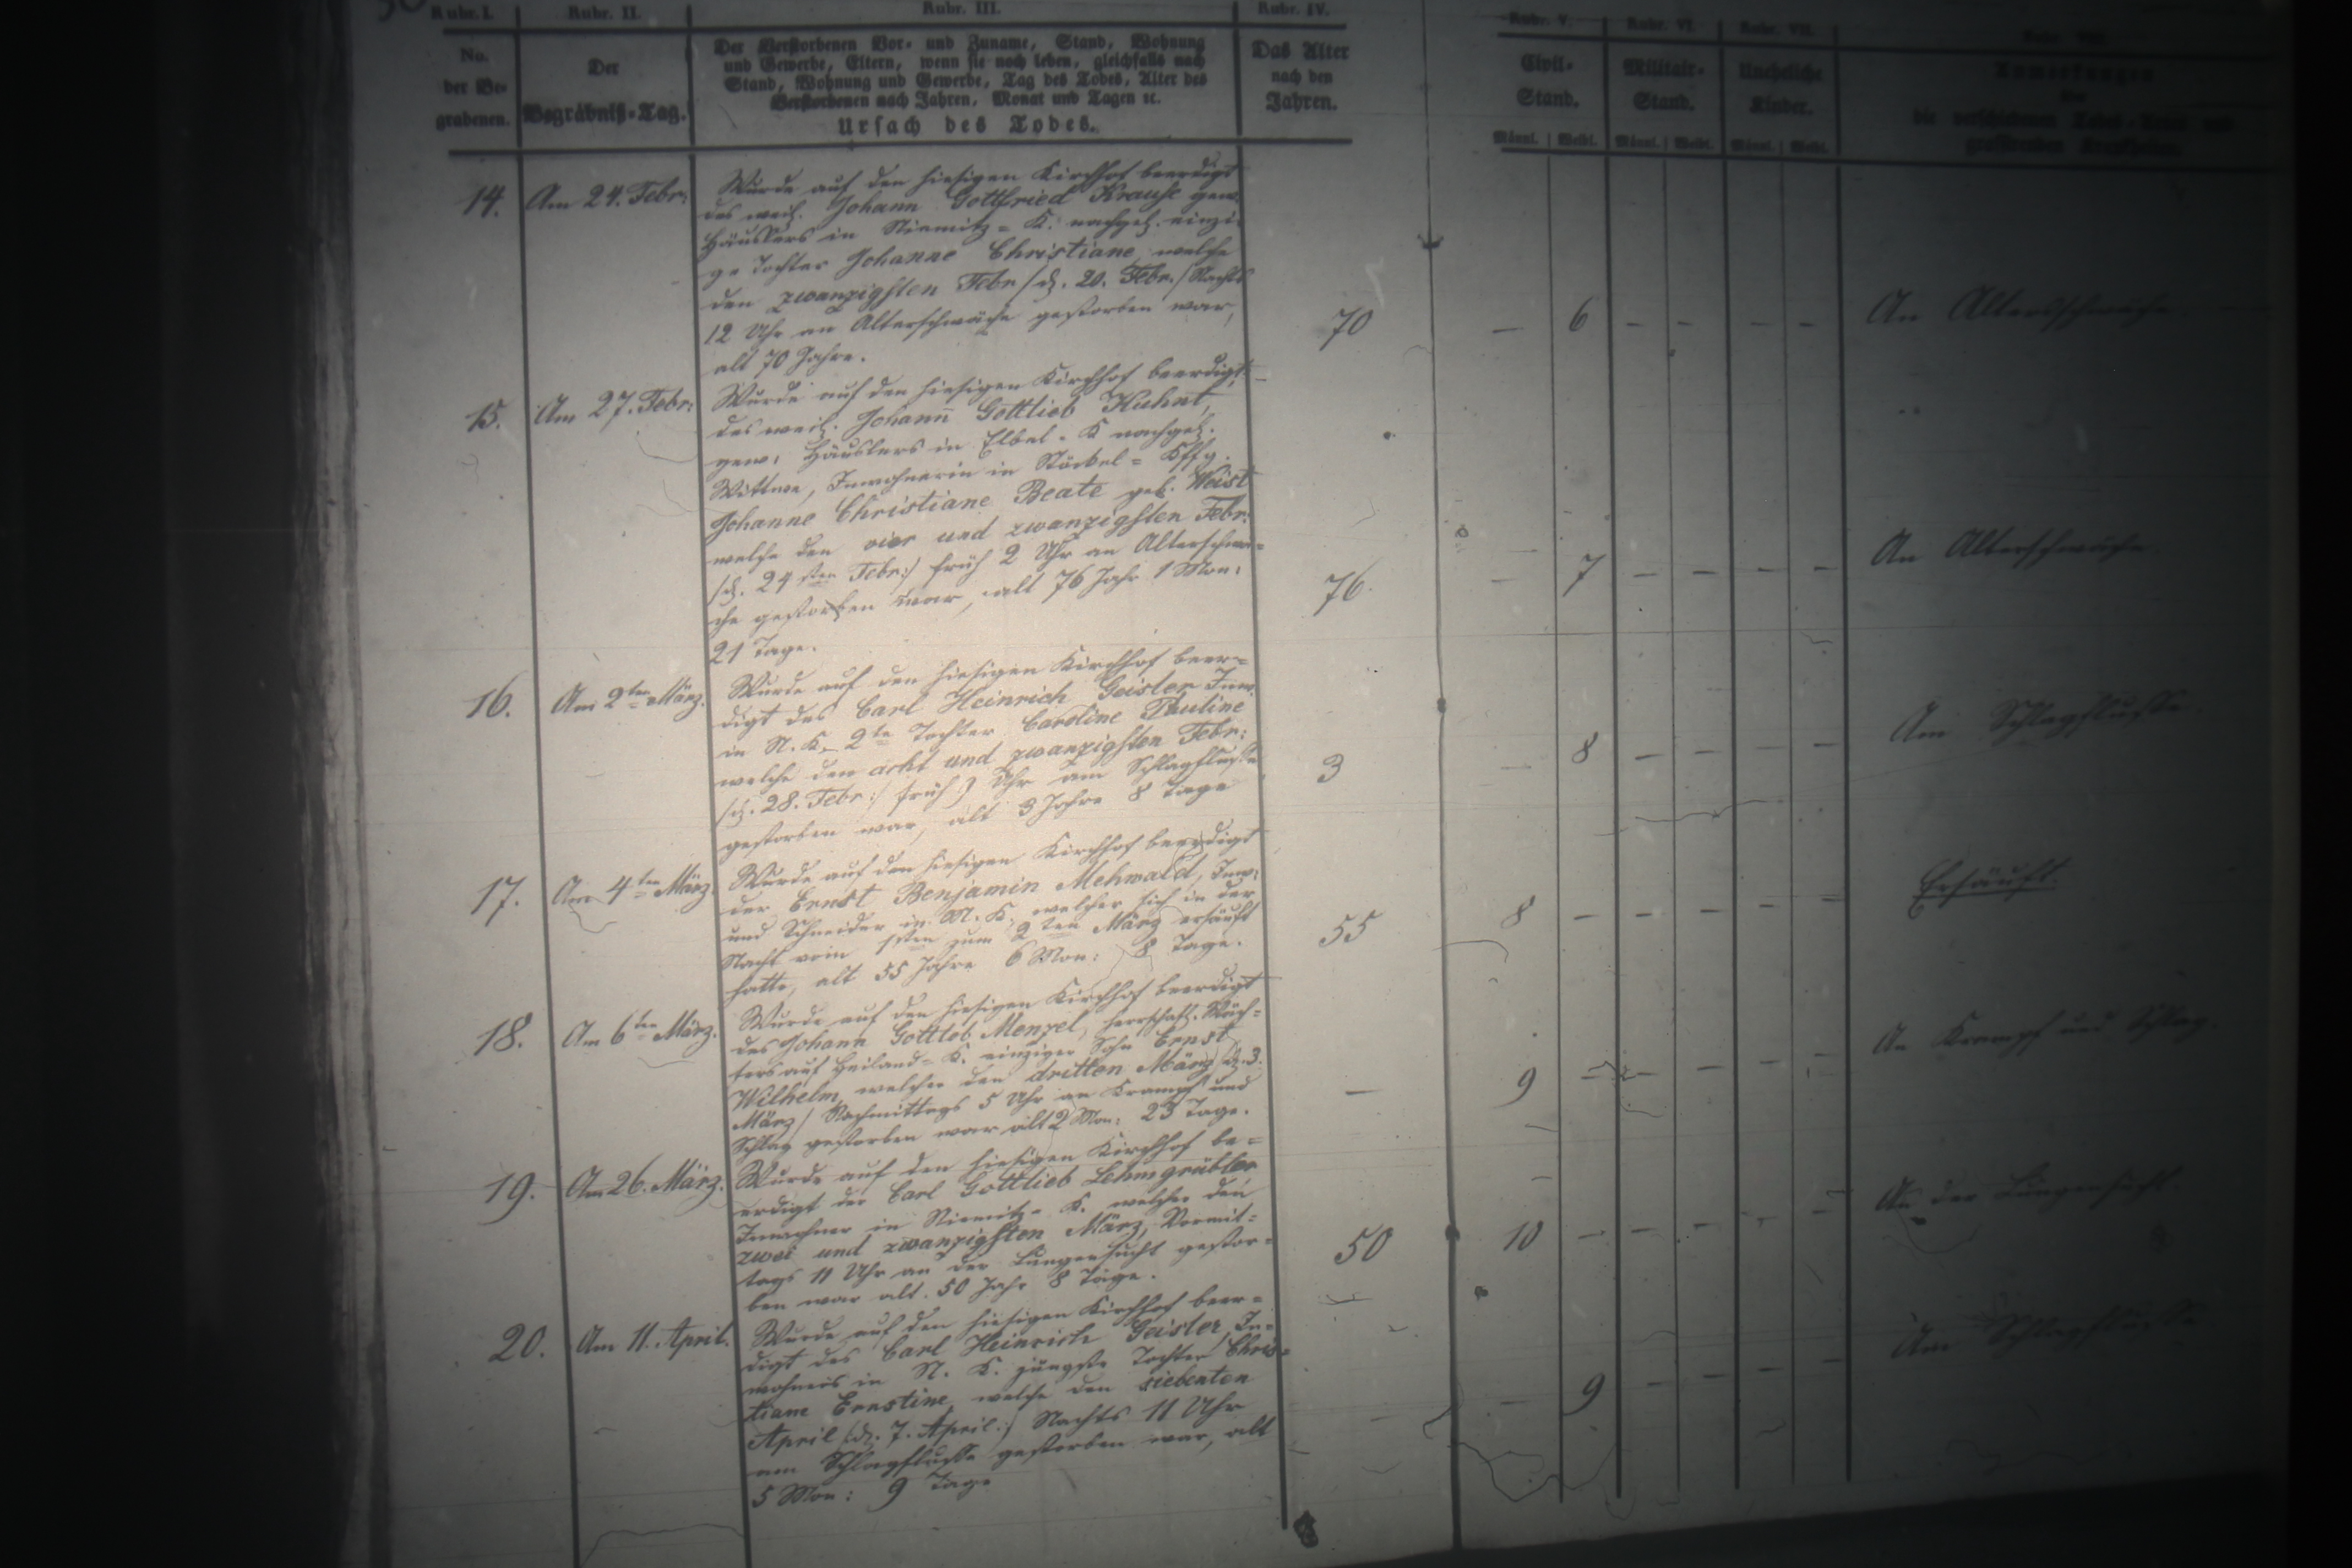 Rubr. I. Rubr. II. Rubr. III. Rubr. IV. Rubr. V. Rubr. VI. Rubr. VII.
No. der Be-
grabenen.
Der
Begräbniß-Tag.
Der Verstorbenen Vor- und Zuname, Stand, Wohnung
und Gewerbe, Eltern, wenn sie noch leben, gleichfalls nach
Stand, Wohnung und Gewerbe, Tag des Todes, Alter des
Verstorbenen nach Jahren, Monat und Tagen ꝛc.
Ursach des Todes.
Das Alter
nach den
Jahren.
Civil-
Stand.
Männl. Weibl.
Militair-
Stand.
Männl. Weibl.
Uneheliche
Kinder.
Männl. Weibl.
Anmerkungen
die verschiedenen
14. Am 24. Febr:
Wurde auf den hiesigen Kirchhof beerdigt
des weil. Johann Gottfried Krause gew.
Häuslers in Niemitz = K. nachgel. einzi-
ge Tochter Johanne Christiane, welche
den zwanzigsten Febr /d. 20. Febr./ Nachts
12 Uhr an Alterschwäche gestorben war,
alt 70 Jahre.
70 — 6 — — — — An Altersschwäche
15. Am 27. Febr:
Wurde auf den hiesigen Kirchhof beerdigt,
des weil. Johann̄ Gottlieb Kuhnt,
gew: Häuslers in Elbel = K nachgel.
Wittwe, Inwohnerin in Stöckel =
Johanne Christiane Beate geb. Weist
welche den vier und zwanzigsten Febr:
/d. 24sten Febr:/ früh 2 Uhr an Alterschwä=
che gestorben war, alt 76 Jahr 1 Mon:
21 Tage.
76. — 7 — — — — An Alterschwäche
16. Am 2ten März.
Wurde auf den hiesigen Kirchhof beer=
digt des Carl Heinrich Geisler Inw.
in N. K. 2te Tochter Caroline Pauline
welche den acht und zwanzigsten Febr:
/d. 28. Febr:/ früh Uhr am Schlagflusse
gestorben war, alt 3 Jahre 8 Tage
3 — 8 — — — — Am Schlagflusse.
17. Am 4ten März.
Wurde auf den hiesigen Kirchhof beerdigt
der Ernst Benjamin Mehwald, Inw:
und Schneider in N. K. welcher sich in der
Nacht vom 1sten zum 2ten März ersäuft
hatte, alt 55 Jahre 6 Mon: 8 Tage.
55 8 — — — — Ersäuft.
18. Am 6ten März.
Wurde auf den hiesigen Kirchhof beerdigt
des Johann Gottlob Menzel, herrschaftl. Wäch=
ters auf Heiland = K. einziger Sohn Ernst
Wilhelm, welcher den dritten März /d. 3.
März/ Nachmittags 5 Uhr an Krampf und
Schlag gestorben war alt 2 Mon: 23 Tage.
— 9 — — — — An Krampf und Schlag.
19. Am 26. März.
Wurde auf den hiesigen Kirchhof be=
erdigt der Carl Gottlieb Lehmgrübler
Inwohner in Niemitz = K. welcher den
zwei und zwanzigsten März, Vormit=
tags 11 Uhr an der Lungensucht gestor=
ben war alt. 50 Jahr 8 Tage.
50 10 — — — — An der Lungensucht.
20. Am 11. April.
Wurde auf den hiesigen Kirchhof beer=
digt des Carl Heinrich Geisler, In=
wohners in N. K. jüngste Tochter Chris=
tiane Ernstine, welche den siebenten
April /d. 7. April:/ Nachts 11 Uhr
am Schlagflusse gestorben war, alt
5 Mon: 9 Tage
— — 9 — — — — Am Schlagflusse